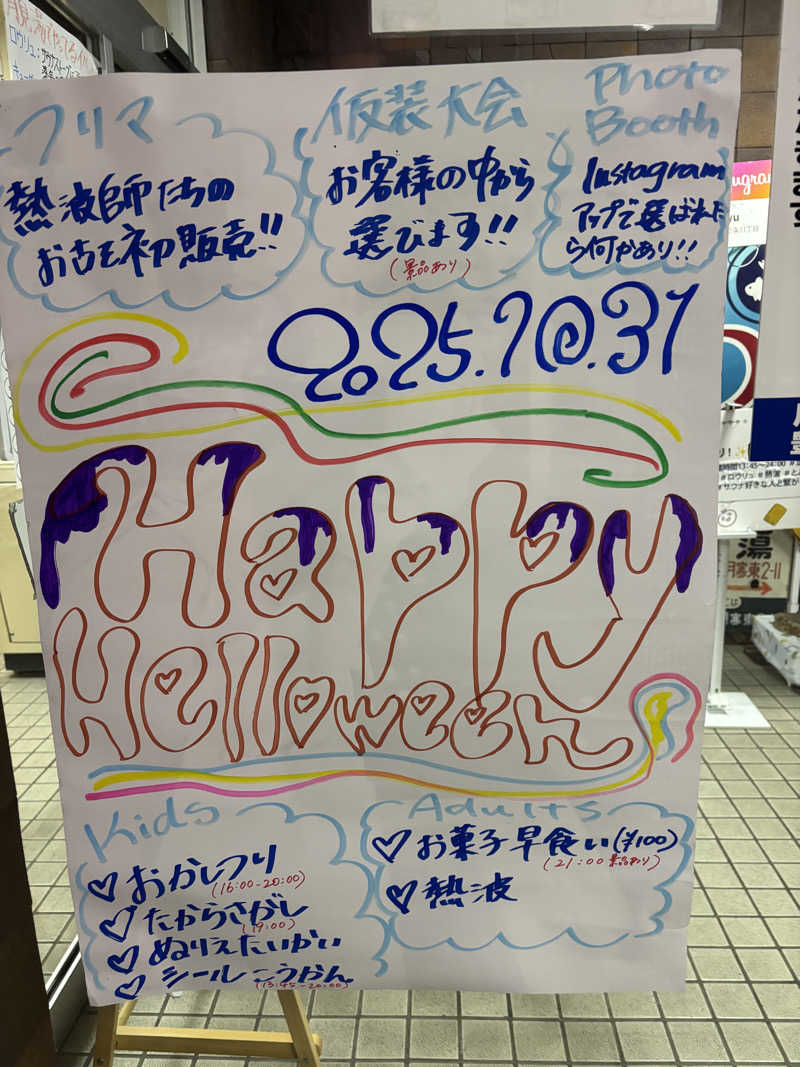 フリマ
熱波師たちの
お古を初販売!!
仮装大会
お客様の中から
選びます!!
(景品あり)
Photo
Booth
Instagram
アップで選ばれた
ら何かあり!!
2025.10.31
Happy
Helloween
Kids
♡おかしつり
(16:00-20:00)
♡たからさがし
(19:00)
♡ぬりえたいかい
♡シールこうかん
(13:45-20:00)
Adults
♡お菓子早食い(¥100)
(21:00 景品あり)
♡熱波